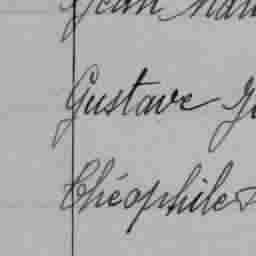 Jean
Gustave
Théophile